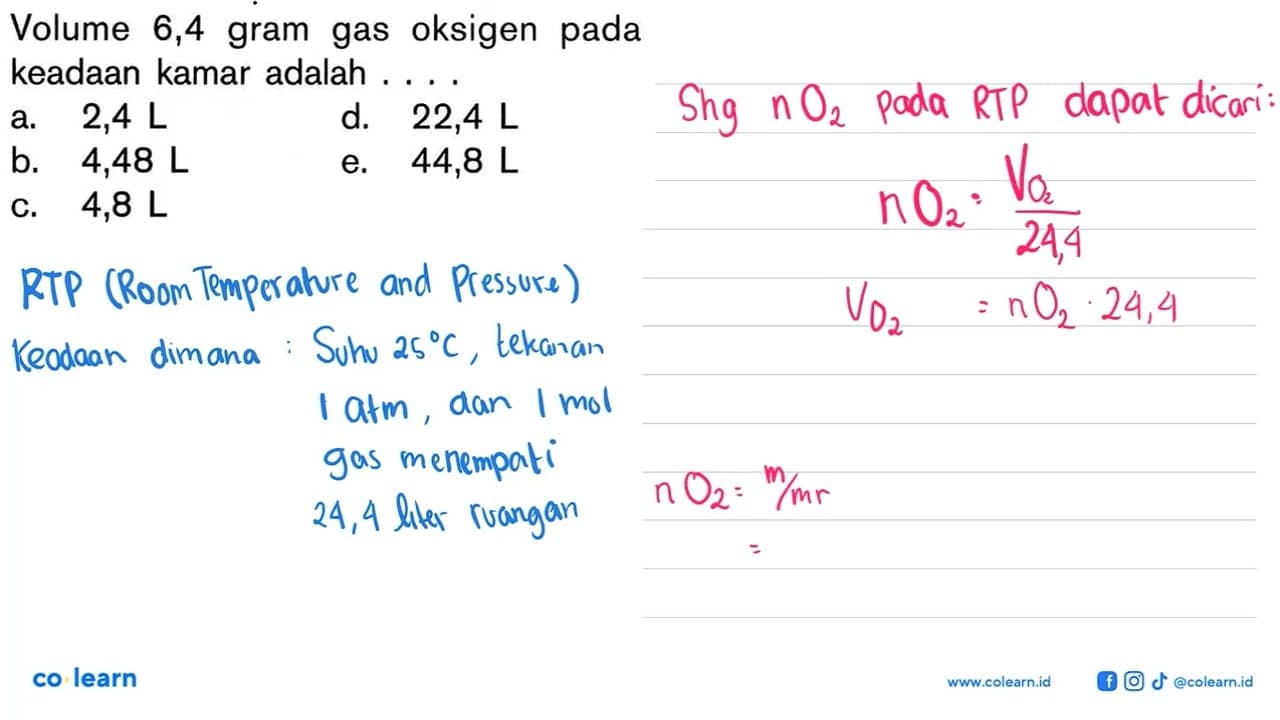 Volume 6,4 gram gas oksigen pada
keadaan kamar adalah . . . .
a. 2,4 L d. 22,4 L
b. 4,48 L e. 44,8 L
c. 4,8 L
RTP (Room Temperature and Pressure)
Keadaan dimana : Suhu 25°C, tekanan
1 atm, dan 1 mol
gas menempati
24,4 liter ruangan
Shg nO₂ pada RTP dapat dicari:
nO₂ = V O₂ / 24,4
V O₂ = nO₂ · 24,4
nO₂ = m/mr
=
co learn
www.colearn.id @colearn.id